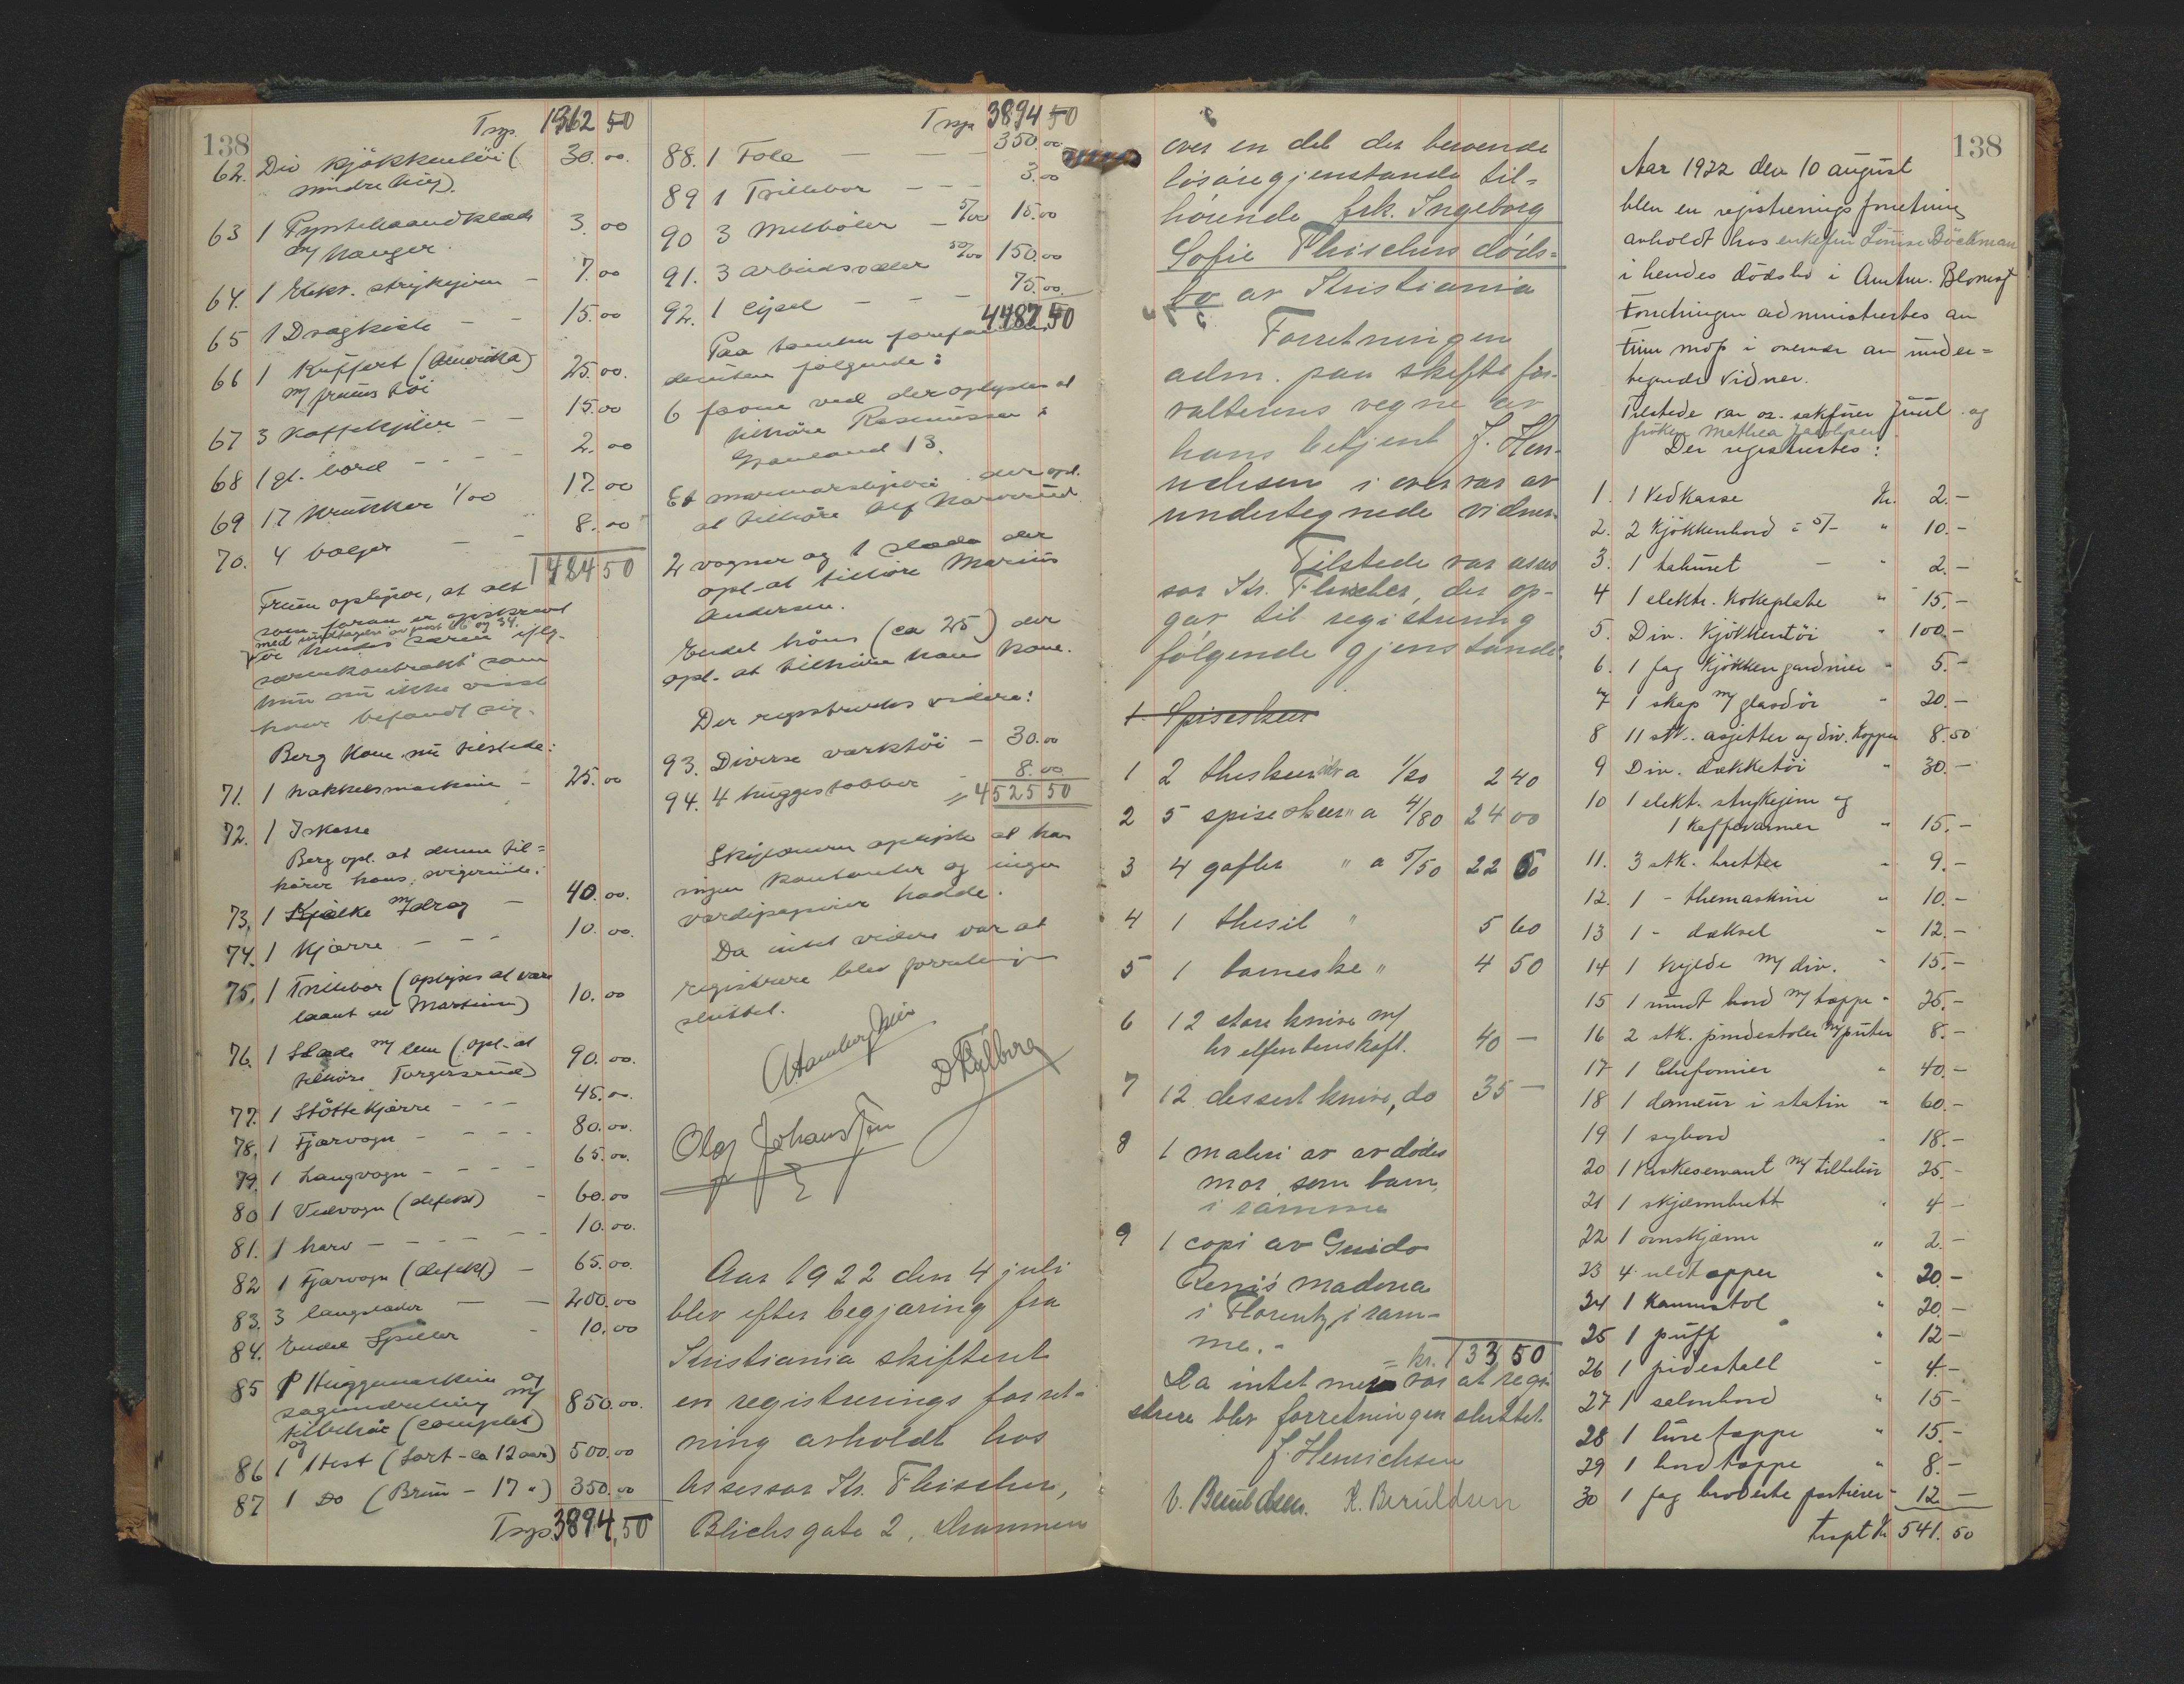 138
Trsp. 1362 50
62. Div kjøkkentøi ( 30.00.
mindre ting).
63 1 Pyntehaandklæde 3.00
m/ hænger.
64. 1 Elektr. strykejern - 7.00
65 1 Dragkiste - - 15.00
66 1 Kuffert (Amerika) 25.00.
m/ fruens tøi
67 3 Kaffekjeler - - 15.00
68 1 gl. bord - - - - 2.00
69 17 Krukker 1/00 17.00
70. 4 baljer - - 8.00
1484 50
Fruen oplyser, at alt
som foran er opskrevet
med undtagelse av post 16 og 34.
er hendes særeie iflg.
særkontrakt som
hun nu ikke visste
hvor befandt sig.
Berg kom nu tilstede:
71. 1 hakkelsmaskine - 25.00
72. 1 Iskasse
Berg opl. at denne til=
hører hans svigerinde.
73. 1 Kjælke m/ drag - 40.00.
74. 1 Kjærre - - - 10.00.
75. 1 Trillebør (oplyses at være
laant av Martinsen) 10.00
76. 1 Slæde m/ lem (opl. at 90.00.
tilhøre Torgersrud)
77. 1 Støttekjærre - - - 45.00.
78. 1 Fjærvogn - - - - 80.00.
79. 1 Langvogn - - - - 65.00.
80 1 Vedvogn (defekt) - 60.00
81. 1 harv - - - - - - 10.00.
82 1 Fjærvogn (defekt) - 65.00.
83. 3 langslæder - - 200.00
84. Endel Spiller - 10.00
85 1 Huggemaskin og
sagindretning m/ 850.00.
tilbehør (complet)
og
86 1 Hest (Sort - ca 12 aar) 500.00
87 1 Do (Brun - 17 ") 350.00
Trsp. 3894,50
Trsp 3894 50
88. 1 Fole - - - 350.00
89 1 Trillebør - - - 3.00
90 3 Melbøler - 5/00 15.00
91. 3 arbeidssæler 50/00 150.00
92. 1 Cykel - - - 75.00.
4487 50
Paa tomten forefandtes
desuten følgende:
6 favne ved der oplystes at
tilhøre Rasmussen i
Grønland 13.
Et marmorskjæri der opl.
at tilhøre Alf Narverud
2 vogner og 1 slæde der
opl. at tilhøre Marius
Andersen.
Endel høns (ca 25) der
opl. at tilhøre hans kone.
Der registrertes videre:
93. Diverse verktøi - 30.00
94. 4 huggestabber - 8.00
= 4525 50
Skyldneren oplyste at han
ingen kontanter og ingen
værdipapirer hadde.
Da intet videre var at
registrere blev forretningen
sluttet.
Olaf Johansen
Aar 1922 den 4 juli
blev efter begjæring fra
Kristiania skifteret
en registrerings forret-
ning avholdt hos
Assessor Kr. Fleischer,
Blichsgate 2, Drammen
over en del der beroende
løsøregjenstande til=
hørende frk. Ingeborg
Sofie Fleischers døds=
bo av Kristiania
Forretningen
adm. paa skiftefor-
valterens vegne av
hans betjent J. Hen-
richsen i overvær av
undertegnede vidner.
Tilstede var asses
sor Kr. Fleischer, der op-
gav til registrering
følgende gjenstande:
1. Spiseskeer
1 2 theskeer sølv a 1/20 2 40
2 5 spiseskeer " a 4/80 24 00
3 4 gafler " a 5/50 22 00
4 1 thesil " 5 60
5 1 barneske " 4 50
6 12 store knive m/
hv elfenbenskaft. 40 -
7 12 dessertknive, do 35 -
8 1 maleri av avdødes
mor som barn,
i ramme
9 1 copi av Guido
Reni's madona
i Florentz, i ram-
me. -
= kr. 133 50
Da intet mere var at regi
strere blev forretningen sluttet
J. Henrichsen
V. Beruldsen. K. Beruldsen
138
Aar 1922 den 10 august
blev en registrerings forretning
avholdt hos enkefru Louise Böckman
i hendes dödsbo i Amtm. Blomsg
Forretningen administrertes av
fuldm. i overvær av under=
tegnede vidner.
Tilstede var or. sakfører Juul og
frøken Mathea Jacobsen.
Der registrertes:
1. 1 Vedkasse Kr. 2.-
2. 2 Kjøkkenbord = 5/- " 10.-
3. 1 taburet - " 2.-
4 1 elektr. kokeplate " 15.-
5. Div. kjøkkentøi " 100.-
6. 1 fag kjøkkengardiner " 5.-
7 1 skap m/ glasdør " 20.-
8 11 stk. asjetter og div. kopper 8.50
9 Div. dækketøi " 30.-
10 1 elekt. strykejern og
1 kaffevarmer " 15.-
11. 3 stk. bretter " 9.-
12. 1 - themaskine " 10.-
13 1 - dæksel " 12.-
14 1 hylde m/ div. " 15.-
15 1 rundt bord m/ teppe " 25.-
16 2 stk. pindestoler m/ puter 8.-
17 1 Chifonier " 40.-
18 1 dameur i stativ " 60.-
19 1 sybord " 18.-
20 1 Vaskeservant m/ tilbehør 25.-
21 1 skjærmbrett " 4 -
22 1 ovnskjærm " 2.-
23 4 uldtepper " 20.-
24 1 Kurvstol " 20.-
25 1 puff " 12 -
26 1 pidestall " 4.-
27 1 salonbord " 15 -
28 1 lurøteppe " 15.-
29 1 bordteppe " 8.-
30 1 fag broderte portierer " 12 -
trspt kr 541.50